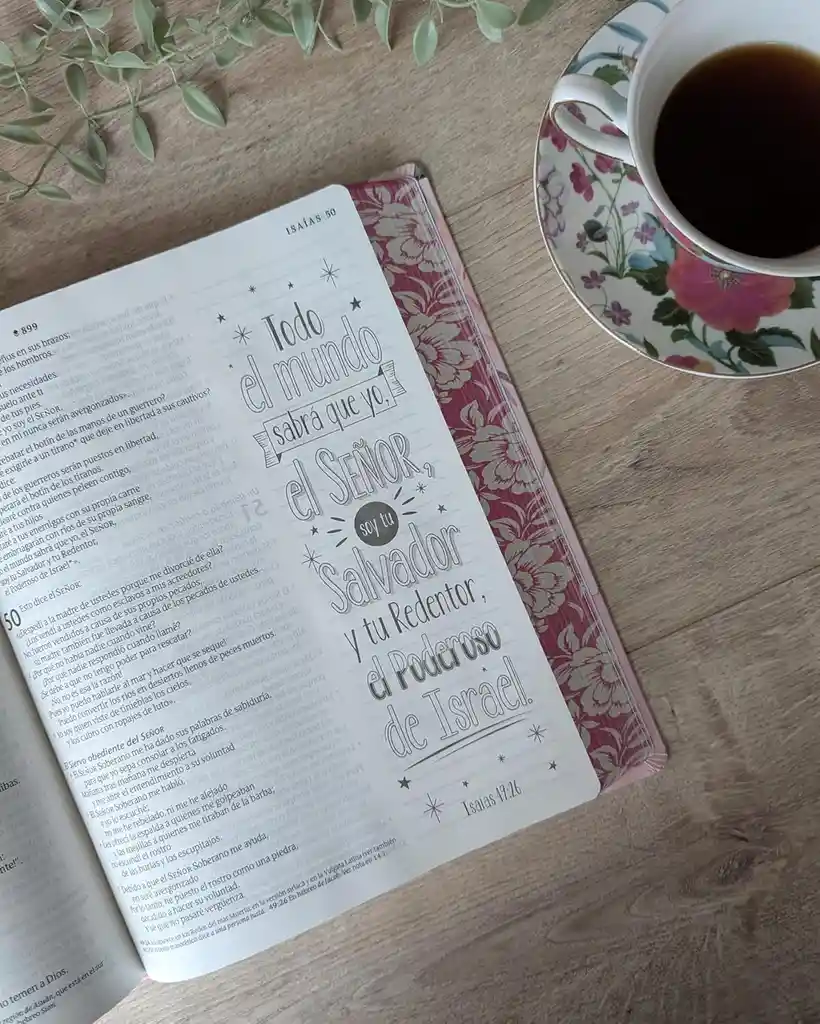 ISAÍAS 50
899
eñus en sus brazos;
e los hombros.
us necesidades.
suelo ante ti
de tus pies.
e yo soy el SEÑOR.
en mí nunca serán avergonzados».
rebatar el botín de las manos de un guerrero?
e exigirle a un tirano* que deje en libertad a sus cautivos?
dice:
de los guerreros serán puestos en libertad,
perará el botín de los tiranos.
learé contra quienes peleen contigo,
aré a tus hijos.
taré a tus enemigos con su propia carne
embriagarán con ríos de su propia sangre,
o el mundo sabrá que yo, el SEÑOR,
soy tu Salvador y tu Redentor,
el Poderoso de Israel*».
50 Esto dice el SEÑOR:
«¿Despedí a la madre de ustedes porque me divorcié de ella?
¿Los vendí a ustedes como esclavos a mis acreedores?
No, fueron vendidos a causa de sus propios pecados;
su madre también fue llevada a causa de los pecados de ustedes.
¿Por qué no había nadie cuando vine?
¿Por qué nadie respondió cuando llamé?
¿Se debe a que no tengo poder para rescatar?
¡No, no es esa la razón!
Pues yo puedo hablarle al mar y hacer que se seque!
Puedo convertir los ríos en desiertos llenos de peces muertos.
Yo soy quien viste de tinieblas los cielos,
y los cubro con ropajes de luto».
El siervo obediente del SEÑOR
El SEÑOR Soberano me ha dado sus palabras de sabiduría,
para que yo sepa consolar a los fatigados.
Mañana tras mañana me despierta
y me abre el entendimiento a su voluntad.
El SEÑOR Soberano me habló,
y yo lo escuché;
no me he rebelado, ni me he alejado.
Les ofrecí la espalda a quienes me golpeaban
y las mejillas a quienes me tiraban de la barba;
no escondí el rostro
de las burlas y los escupitajos.
Debido a que el SEÑOR Soberano me ayuda,
no seré avergonzado.
Por lo tanto, he puesto el rostro como una piedra,
decidido a hacer su voluntad.
Y sé que no pasaré vergüenza.
en los Rollos del mar Muerto, en la versión siríaca y en la Vulgata Latina (ver también
masorético dice a una persona justa. 49:26 En hebreo de Jacob. Ver nota en 14:1.
Todo
el mundo
sabrá que yo,
el SEÑOR,
soy tu
Salvador
y tu Redentor,
el Poderoso
de Israel.
Isaías 49:26
ibas.
nte!".
no temen a Dios.
región de Asuán, que está en el sur
hebreo Sión